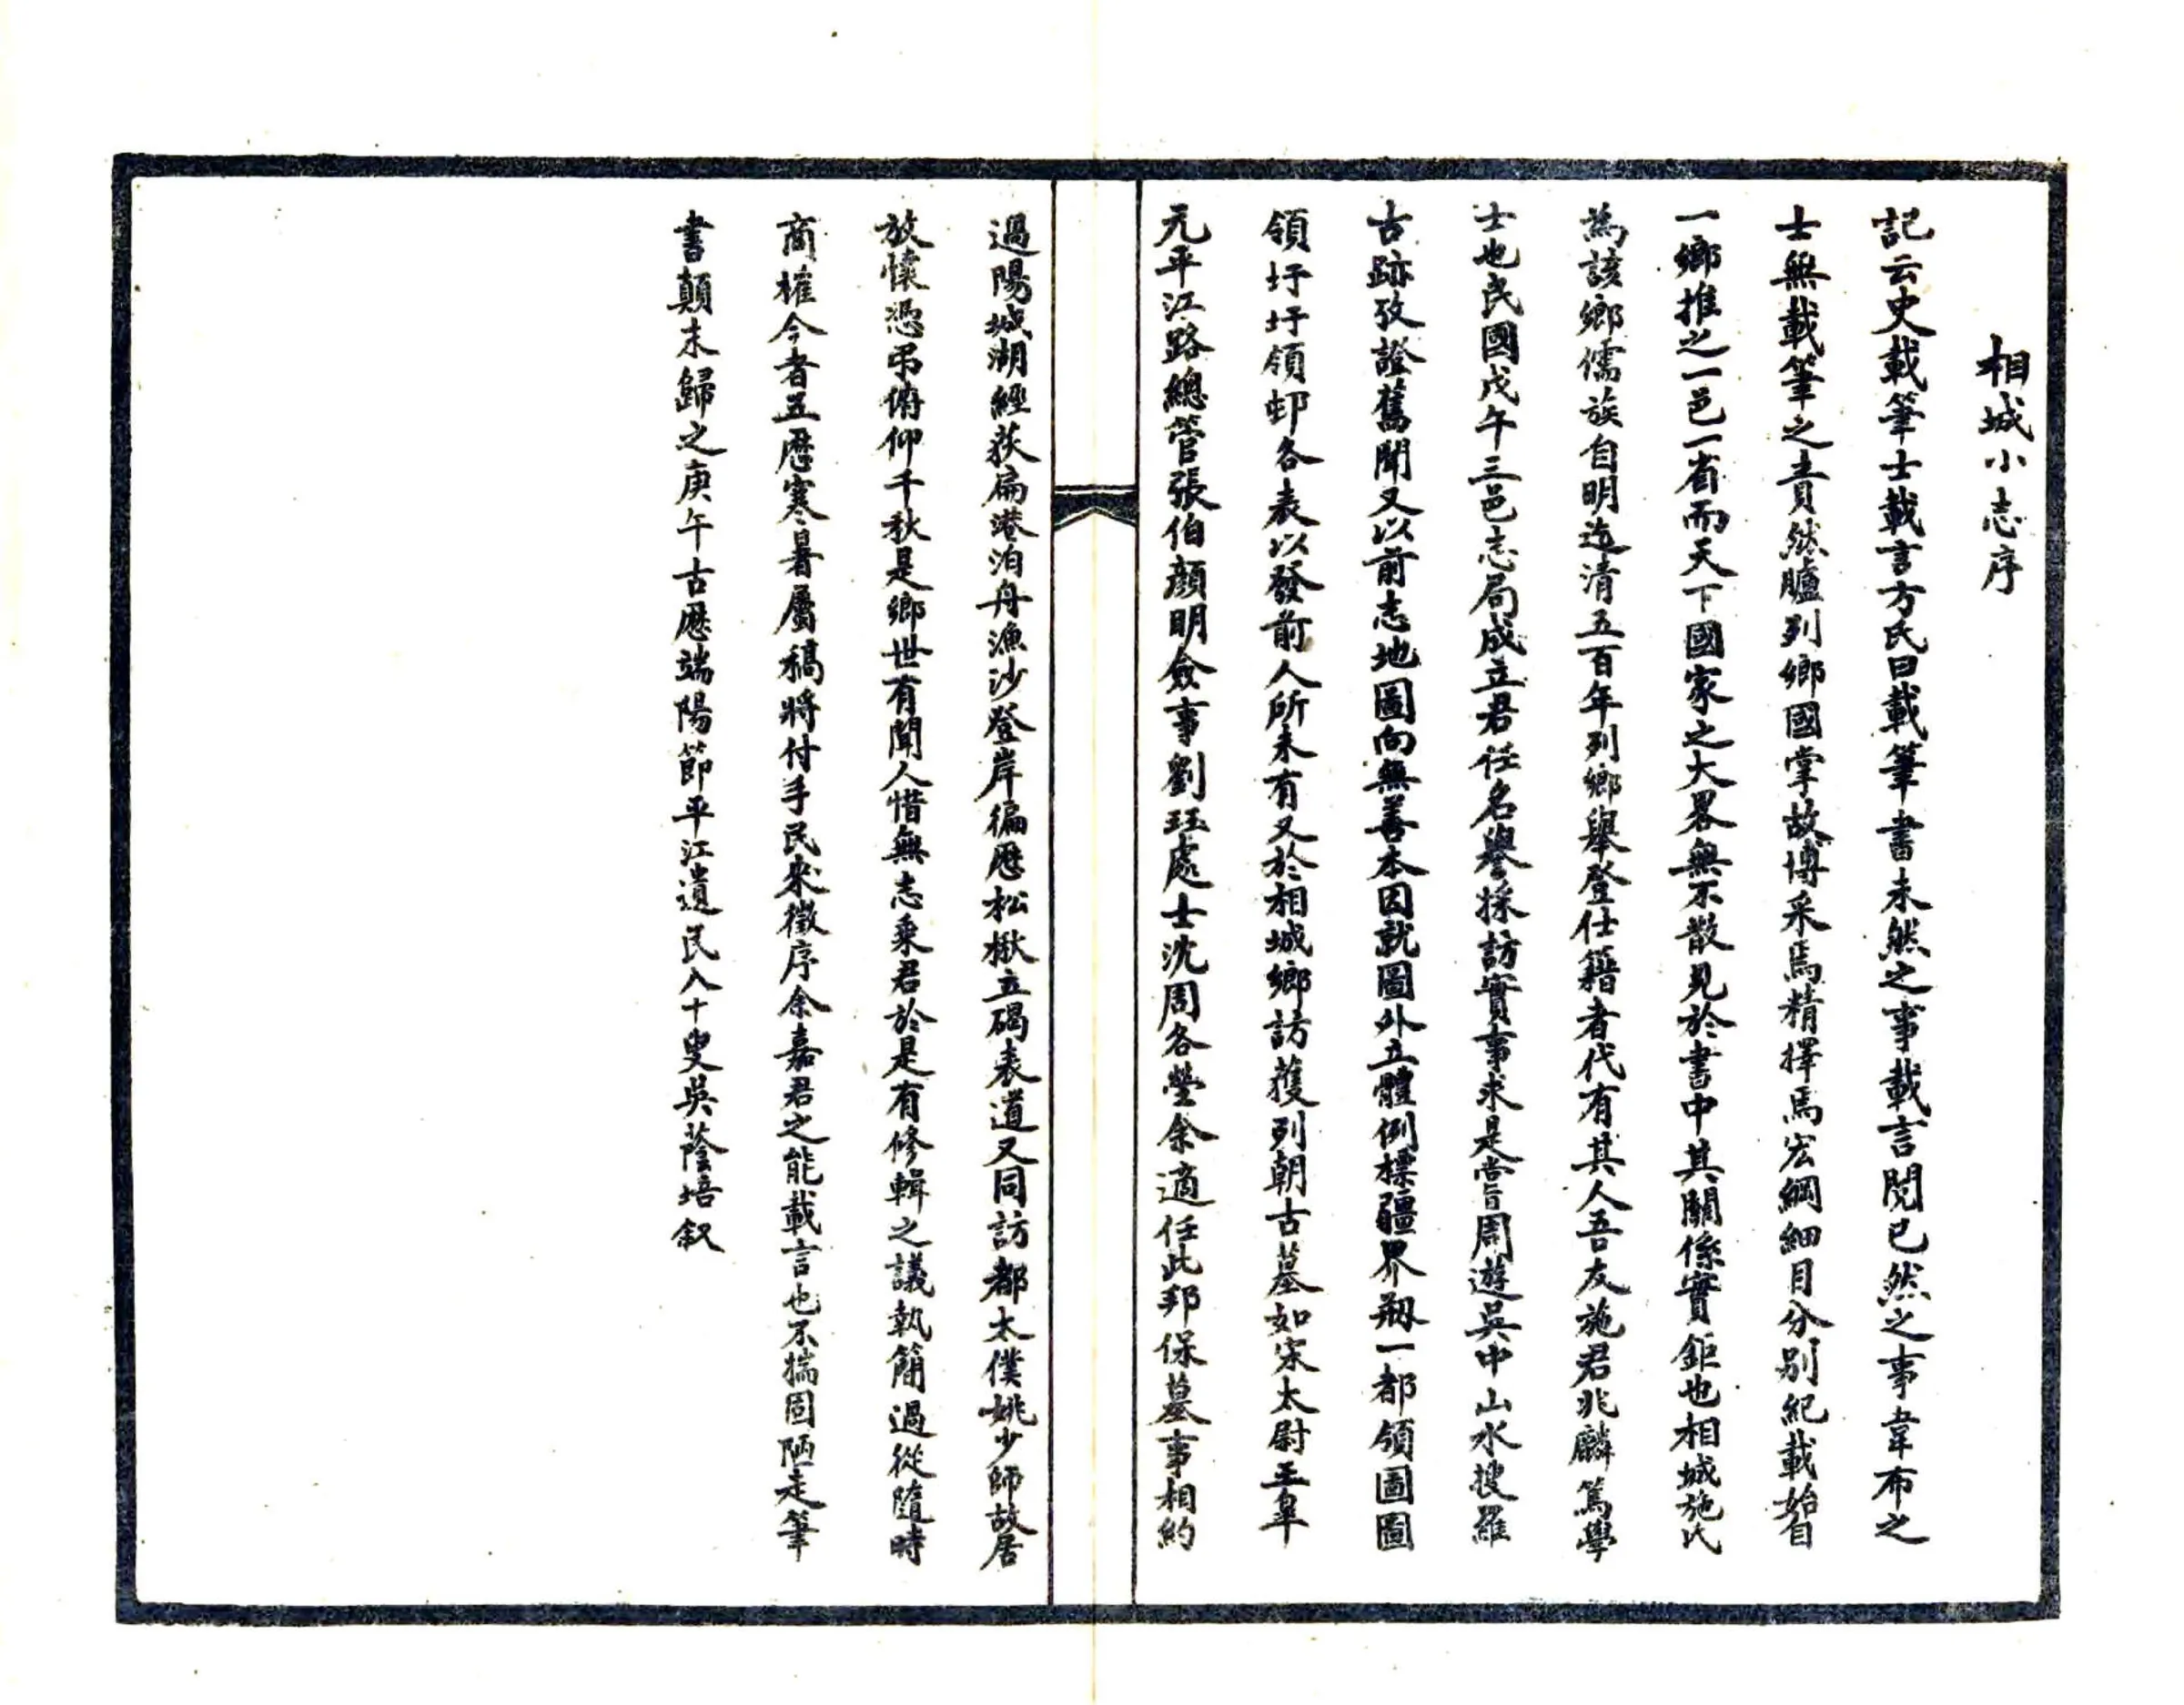 相城小志序
記云史載筆士載言方氏曰載筆書未然之事載言閱已然之事韋布之
士無載筆之責然臚列鄉國掌故博采焉精擇焉宏綱細目分別紀載始自
一鄉推之一邑一省而天下國家之大畧無不散見於書中其關係實鉅也相城施氏
為該鄉儒族自明迄清五百年列鄉舉登仕籍者代有其人吾友施君兆麟篤學
士也民國戊午三邑志局成立君任名譽採訪實事求是嘗周遊吳中山水搜羅
古跡攷證舊聞又以前志地圖向無善本因就圖外立體例標疆界剏一都領圖圖
領圩圩領邨各表以發前人所未有又於相城鄉訪獲列朝古墓如宋太尉王皐
元平江路總管張伯顏明僉事劉珏處士沈周各塋余適任此邦保墓事相約
過陽城湖經荻扁港泊舟漁沙登岸徧歷松楸立碣表道又同訪都太僕姚少師故居
放懷憑弔俯仰千秋是鄉世有聞人惜無志乘君於是有修輯之議執簡過從隨時
商榷今者五歷寒暑屬稿將付手民來徵序余嘉君之能載言也不揣固陋走筆
書顛末歸之庚午古歷端陽節平江遺民八十叟吳蔭培叙